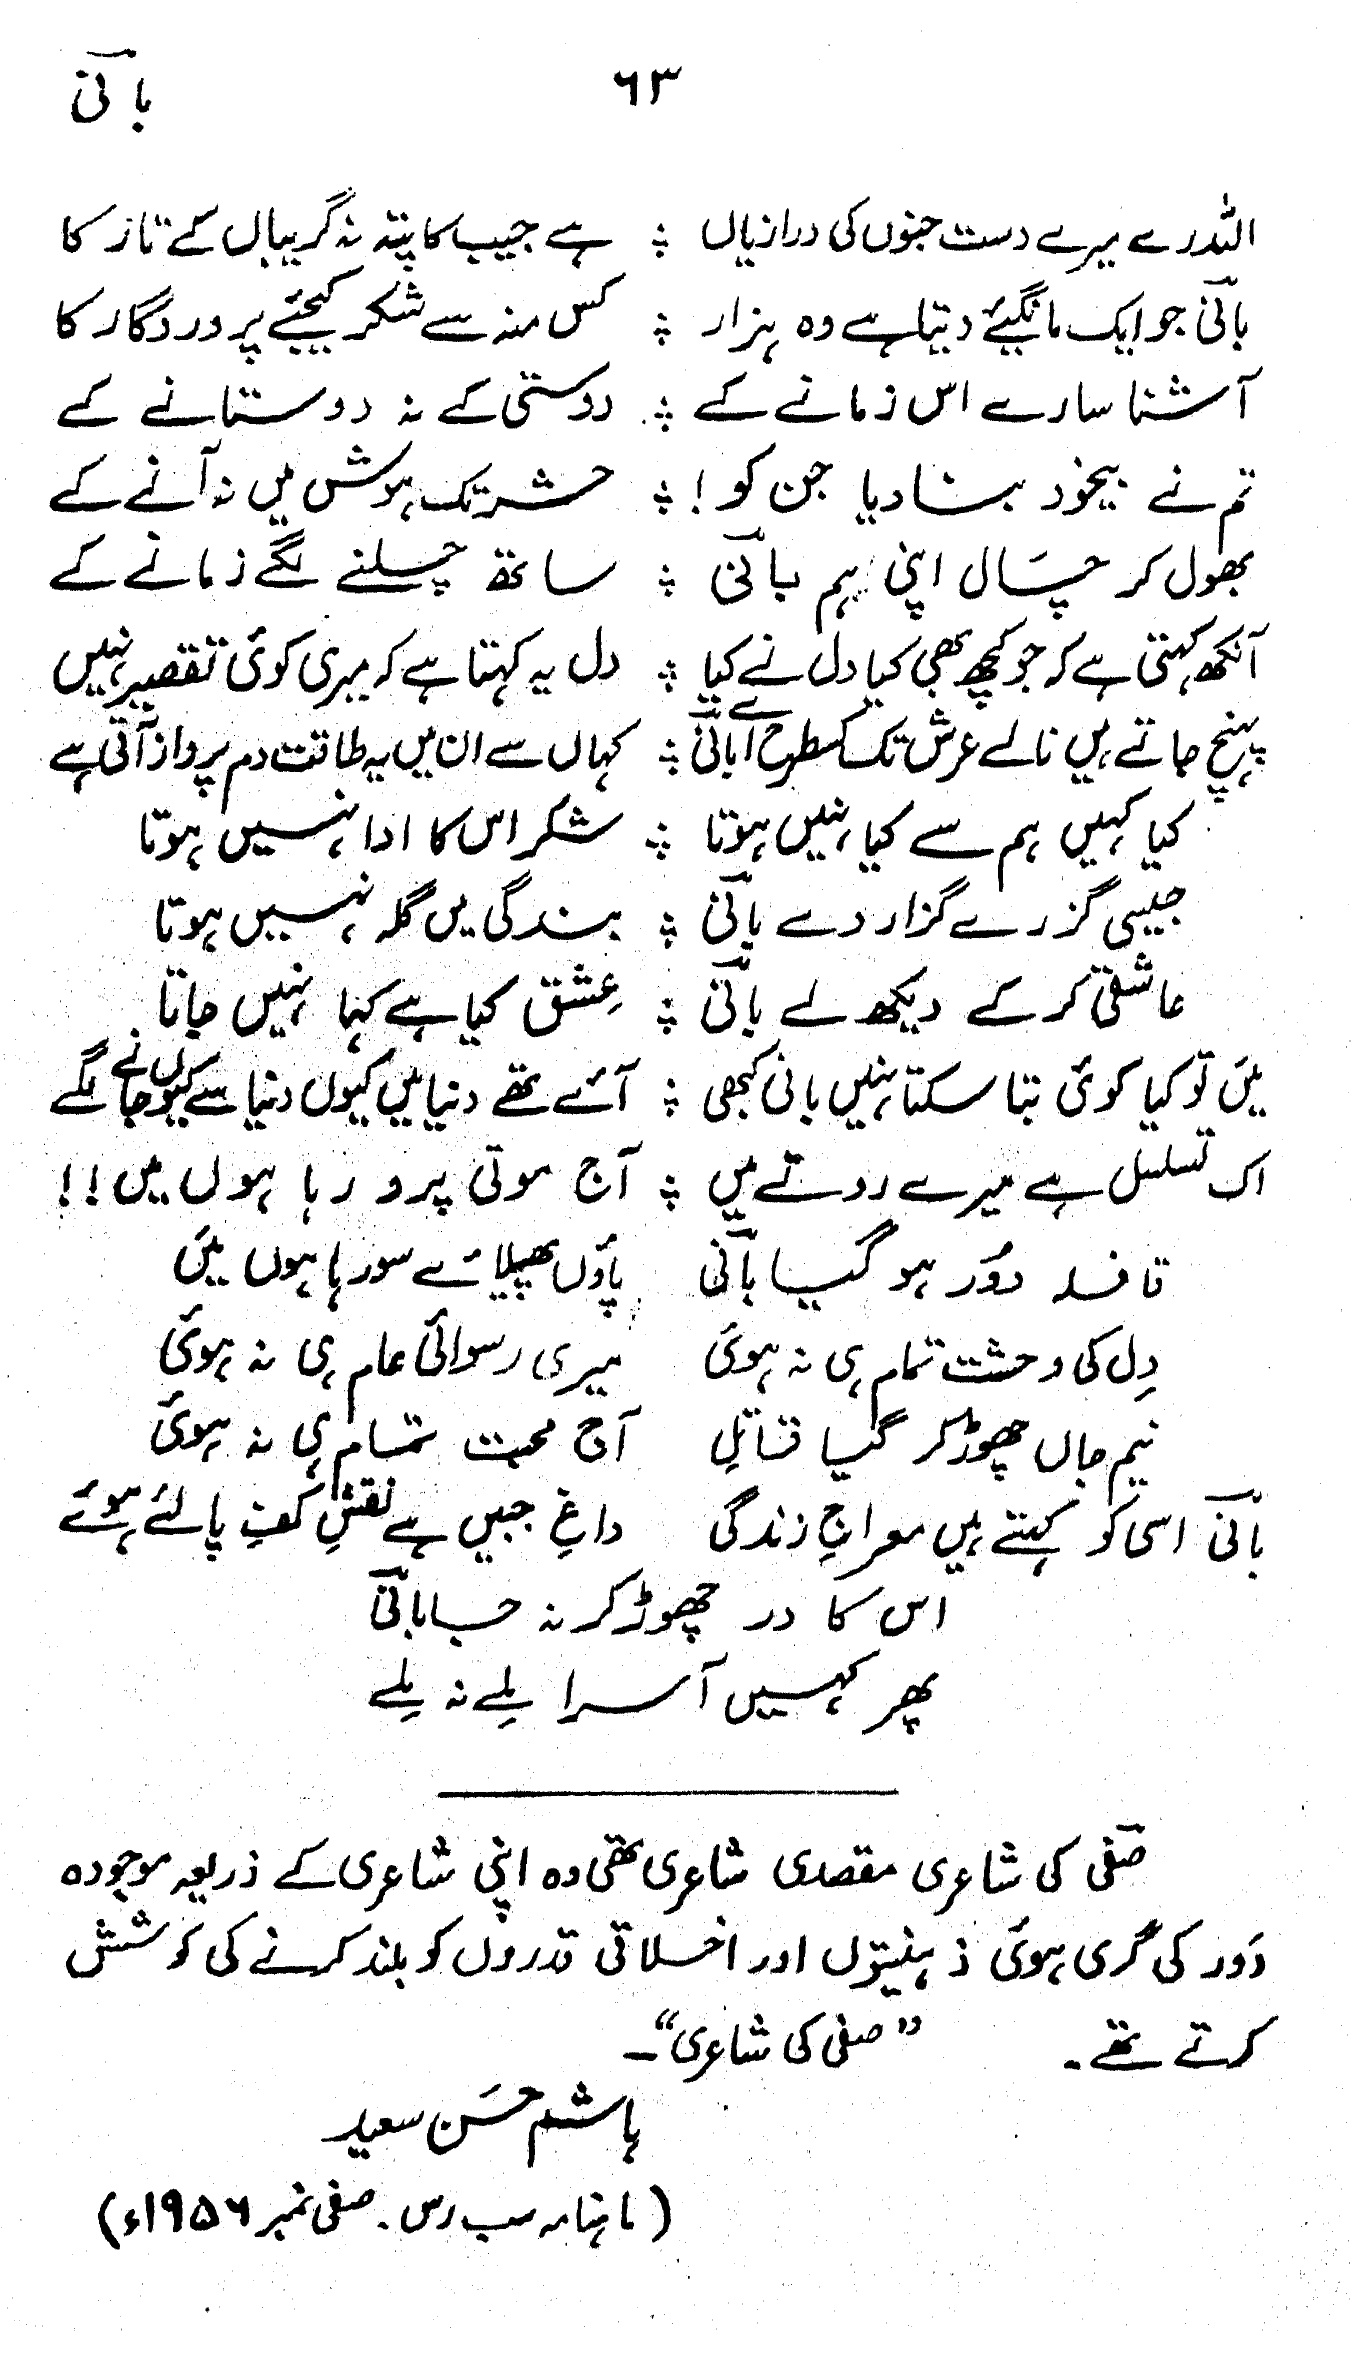 بانیؔ ۶۳
اللہ رے میرے دست جنوں کی درازیاں ؛ ہے جیب کا پتہ نہ گریباں کے تار کا
بانیؔ جو ایک مانگیئے دیتا ہے وہ ہزار ؛ کس منہ سے شکر کیجئے پروردگار کا
آشنا سارے اس زمانے کے ؛ دوستی کے نہ دوستانے کے
تم نے بیخود بنا دیا جن کو ! ؛ حشر تک ہوش میں نہ آنے کے
بھول کر چال اپنی ہم بانیؔ ؛ ساتھ چلنے لگے زمانے کے
آنکھ کہتی ہے کہ جو کچھ بھی کیا دل نے کیا ؛ دل یہ کہتا ہے کہ میری کوئی تقصیر نہیں
پہنچ جاتے ہیں نالے عرش تک کسطرح اے بانیؔ ؛ کہاں سے ان میں یہ طاقت دم پرواز آتی ہے
کیا کہیں ہم سے کیا نہیں ہوتا ؛ شکر اس کا ادا نہیں ہوتا
جیسی گزرے گزار دے بانیؔ ؛ بندگی میں گلہ نہیں ہوتا
عاشقی کر کے دیکھ لے بانیؔ ؛ عِشق کیا ہے کہا نہیں جاتا
میں تو کیا کوئی بتا سکتا نہیں بانی کبھی ؛ آئے تھے دنیا میں کیوں دنیا سے کیوں جانے لگے
اک تسلسل ہے میرے رونے میں ؛ آج موتی پرو رہا ہوں میں !!
قافلہ دُور ہو گیا بانیؔ پاؤں پھیلائے سو رہا ہوں میں
دِل کی وحشت تمام ہی نہ ہوئی میری رسوائی عام ہی نہ ہوئی
نیم جاں چھوڑ کر گیا قاتِل آج محبت تمام ہی نہ ہوئی
بانیؔ اسی کو کہتے ہیں معراجِ زندگی داغِ جبیں ہے نقشِ کفِ پا لئے ہوئے
اس کا در چھوڑ کر نہ جا بانیؔ
پھر کہیں آسرا مِلے نہ مِلے
صفیؔ کی شاعری مقصدی شاعری تھی وہ اپنی شاعری کے ذریعہ موجودہ
دَور کی گری ہوئی ذہنیتوں اور اخلاقی قدروں کو بلند کرنے کی کوشش
کرتے تھے۔ ”صفی کی شاعری“۔
ہاشم حسَن سعید
(ماہنامہ سب رس۔ صفی نمبر ۱۹۵۶ء)